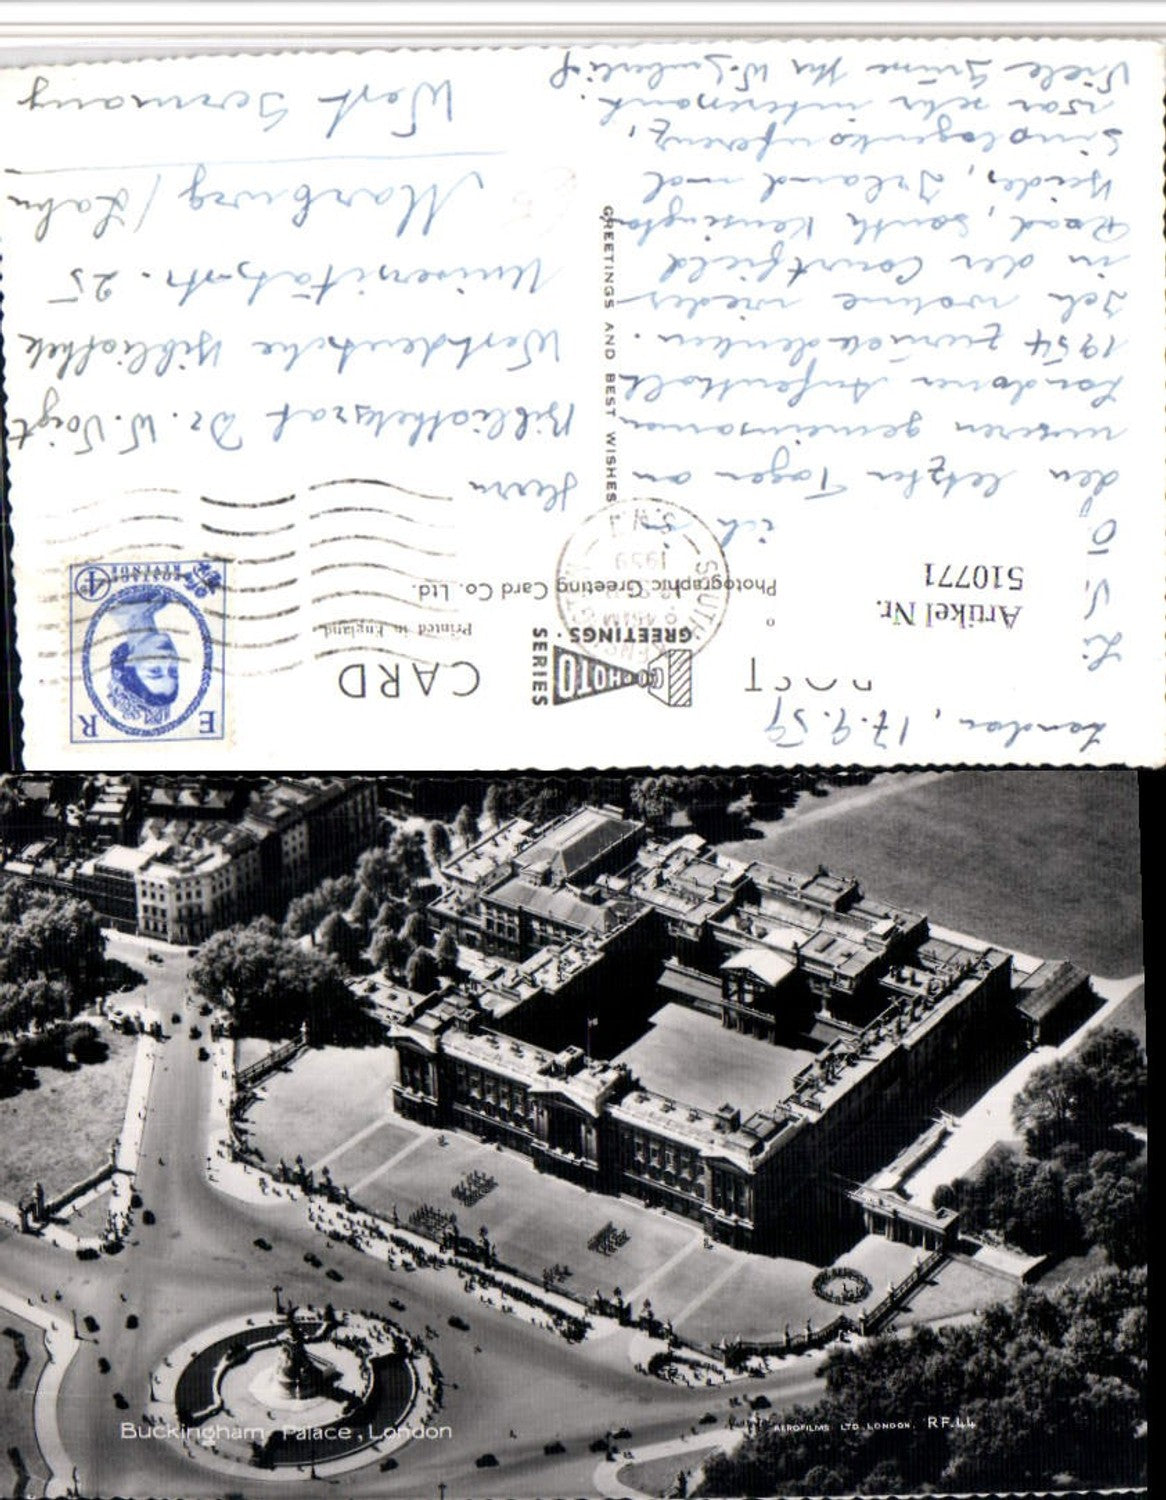 London, 17.9.59
POST CARD
Li. V. Ö.
Artikel Nr.
510771
PHOTO
GREETINGS
SERIES
Printed in England.
Photographic Greeting Card Co. Ltd.
E R
POSTAGE
REVENUE
4D
SOUTH KENSINGTON
1959
S.W.7
GREETINGS AND BEST WISHES
ich
den letzten Tagen an
unseren gemeinsamen
Londoner Aufenthalt
1954 zurückdenken.
Ich wohne wieder
in der Courtfield
Road, South Kensington
Irland und
Sinologenkonferenz,
war sehr interessant.
Viele Grüße Ihr
Herrn
Bibliotheksrat Dr. W. Voigt
Westdeutsche Bibliothek
Universitätsstr. 25
Marburg / Lahn
West Germany
Buckingham Palace, London
AEROFILMS LTD. LONDON. RF.44